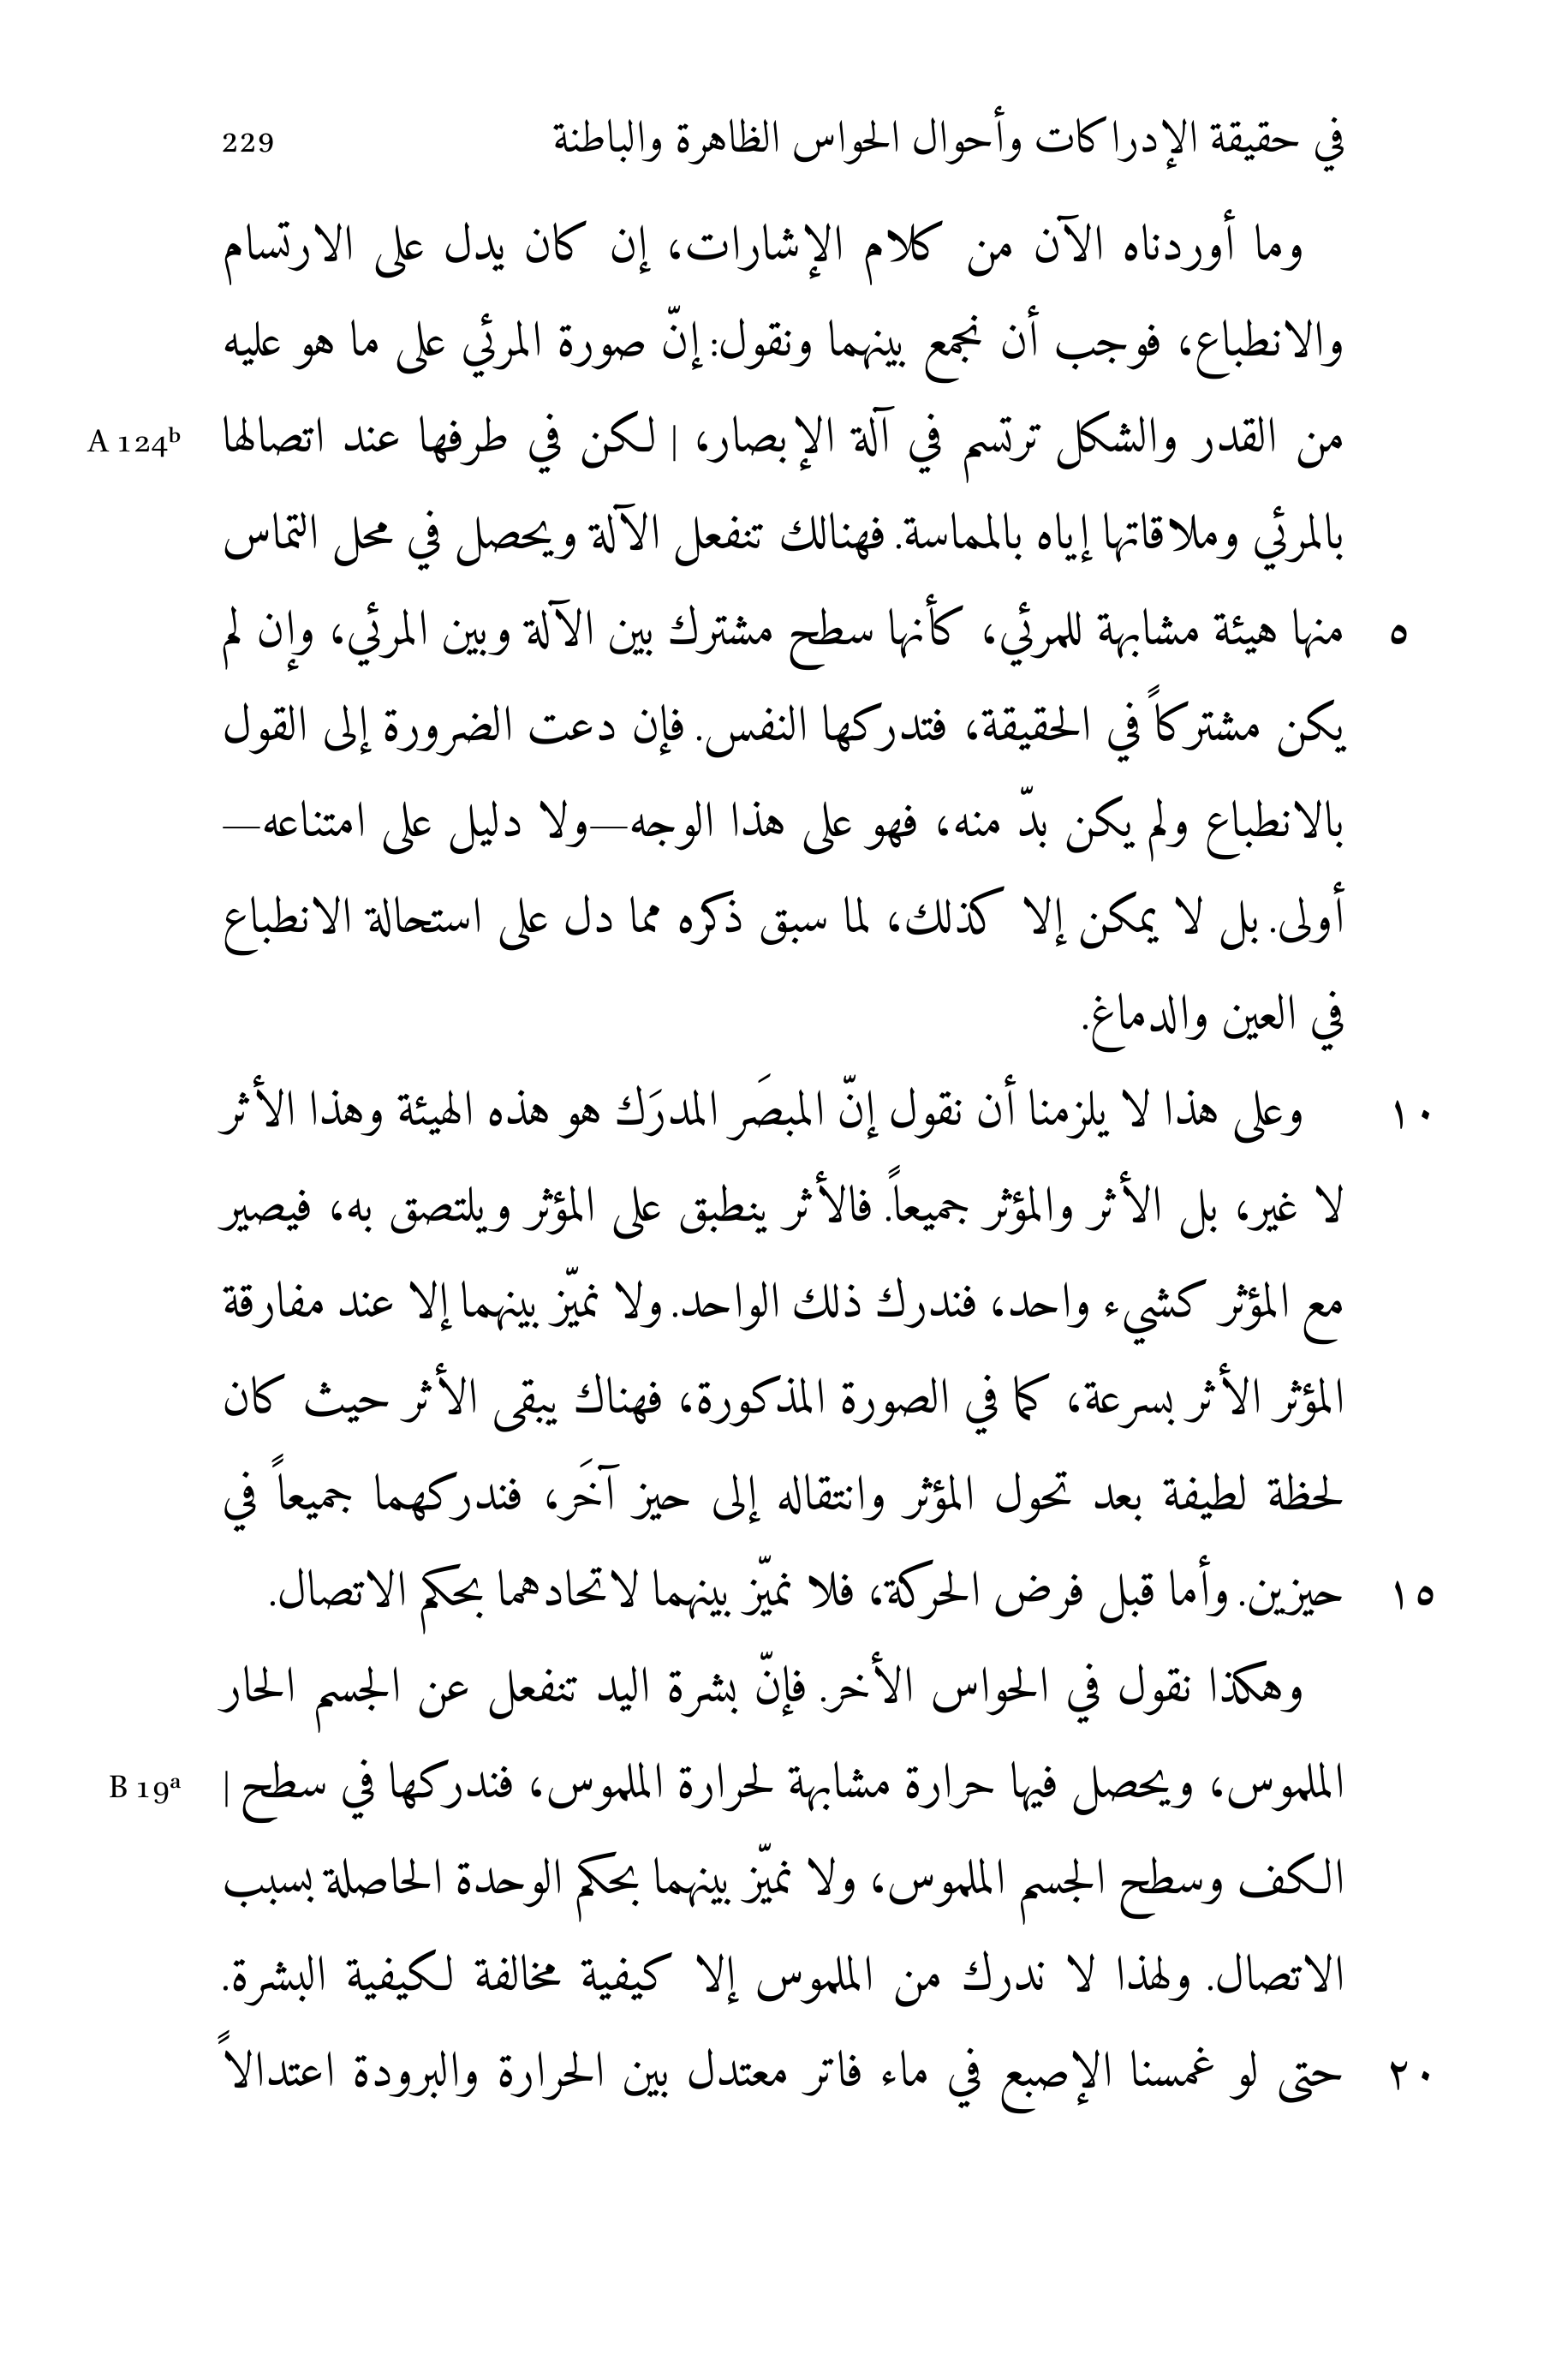 في حقيقة الإدراكات وأحوال الحواس الظاهرة والباطنة 229
وما أوردناه الآن من كلام الإشارات، إن كان يدل على الارتسام
والانطباع، فوجب أن نجمع بينهما ونقول: إنّ صورة المرئي على ما هو عليه
من القدر والشكل ترتسم في آلة الإبصار، | لكن في طرفها عند اتصالها A 124ᵇ
بالمرئي وملاقاتها إياه بالمماسة. فهنالك تنفعل الآلة ويحصل في محل التماس
٥ منها هيئة مشابهة للمرئي، كأنها سطح مشترك بين الآلة وبين المرئي، وإن لم
يكن مشتركاً في الحقيقة، فتدركها النفس. فإن دعت الضرورة إلى القول
بالانطباع ولم يكن بدّ منه، فهو على هذا الوجه—ولا دليل على امتناعه—
أولى. بل لا يمكن إلا كذلك، لما سبق ذكره مما دل على استحالة الانطباع
في العين والدماغ.
١٠ وعلى هذا لا يلزمنا أن نقول إنّ المبصَر المدرَك هو هذه الهيئة وهذا الأثر
لا غير، بل الأثر والمؤثر جميعاً. فالأثر ينطبق على المؤثر ويلتصق به، فيصير
مع المؤثر كشيء واحد، فندرك ذلك الواحد. ولا نميّز بينهما إلا عند مفارقة
المؤثر الأثر بسرعة، كما في الصورة المذكورة، فهناك يبقى الأثر حيث كان
لحظة لطيفة بعد تحول المؤثر وانتقاله إلى حيز آخَر، فندركهما جميعاً في
١٥ حيزين. وأما قبل فرض الحركة، فلا نميّز بينهما لاتحادهما بحكم الاتصال.
وهكذا نقول في الحواس الأخر. فإنّ بشرة اليد تنفعل عن الجسم الحار
الملموس، ويحصل فيها حرارة مشابهة لحرارة الملموس، فندركها في سطح | B 19ᵃ
الكف وسطح الجسم الملموس، ولا نميّز بينهما بحكم الوحدة الحاصلة بسبب
الاتصال. ولهذا لا ندرك من الملموس إلا كيفية مخالفة لكيفية البشرة.
٢٠ حتى لو غمسنا الإصبع في ماء فاتر معتدل بين الحرارة والبرودة اعتدالاً